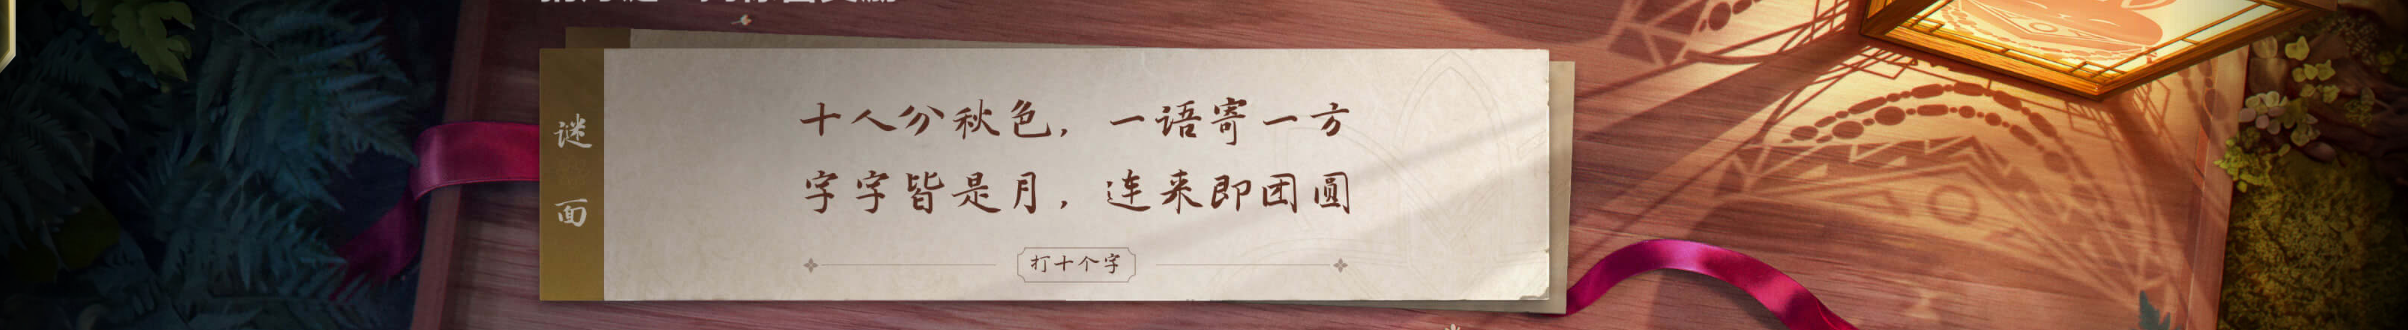 谜面
十人分秋色，一语寄一方
字字皆是月，连来即团圆
打十个字